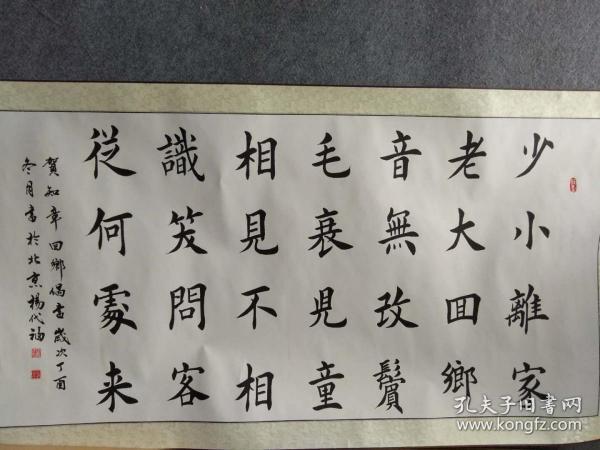 少小離家
老大回鄉
音無改鬢
毛衰児童
相見不相
識笑問客
從何處来
賀知章回鄉偶書歲次丁酉
冬月書於北京楊代福
孔夫子旧書网
www.kongfz.com